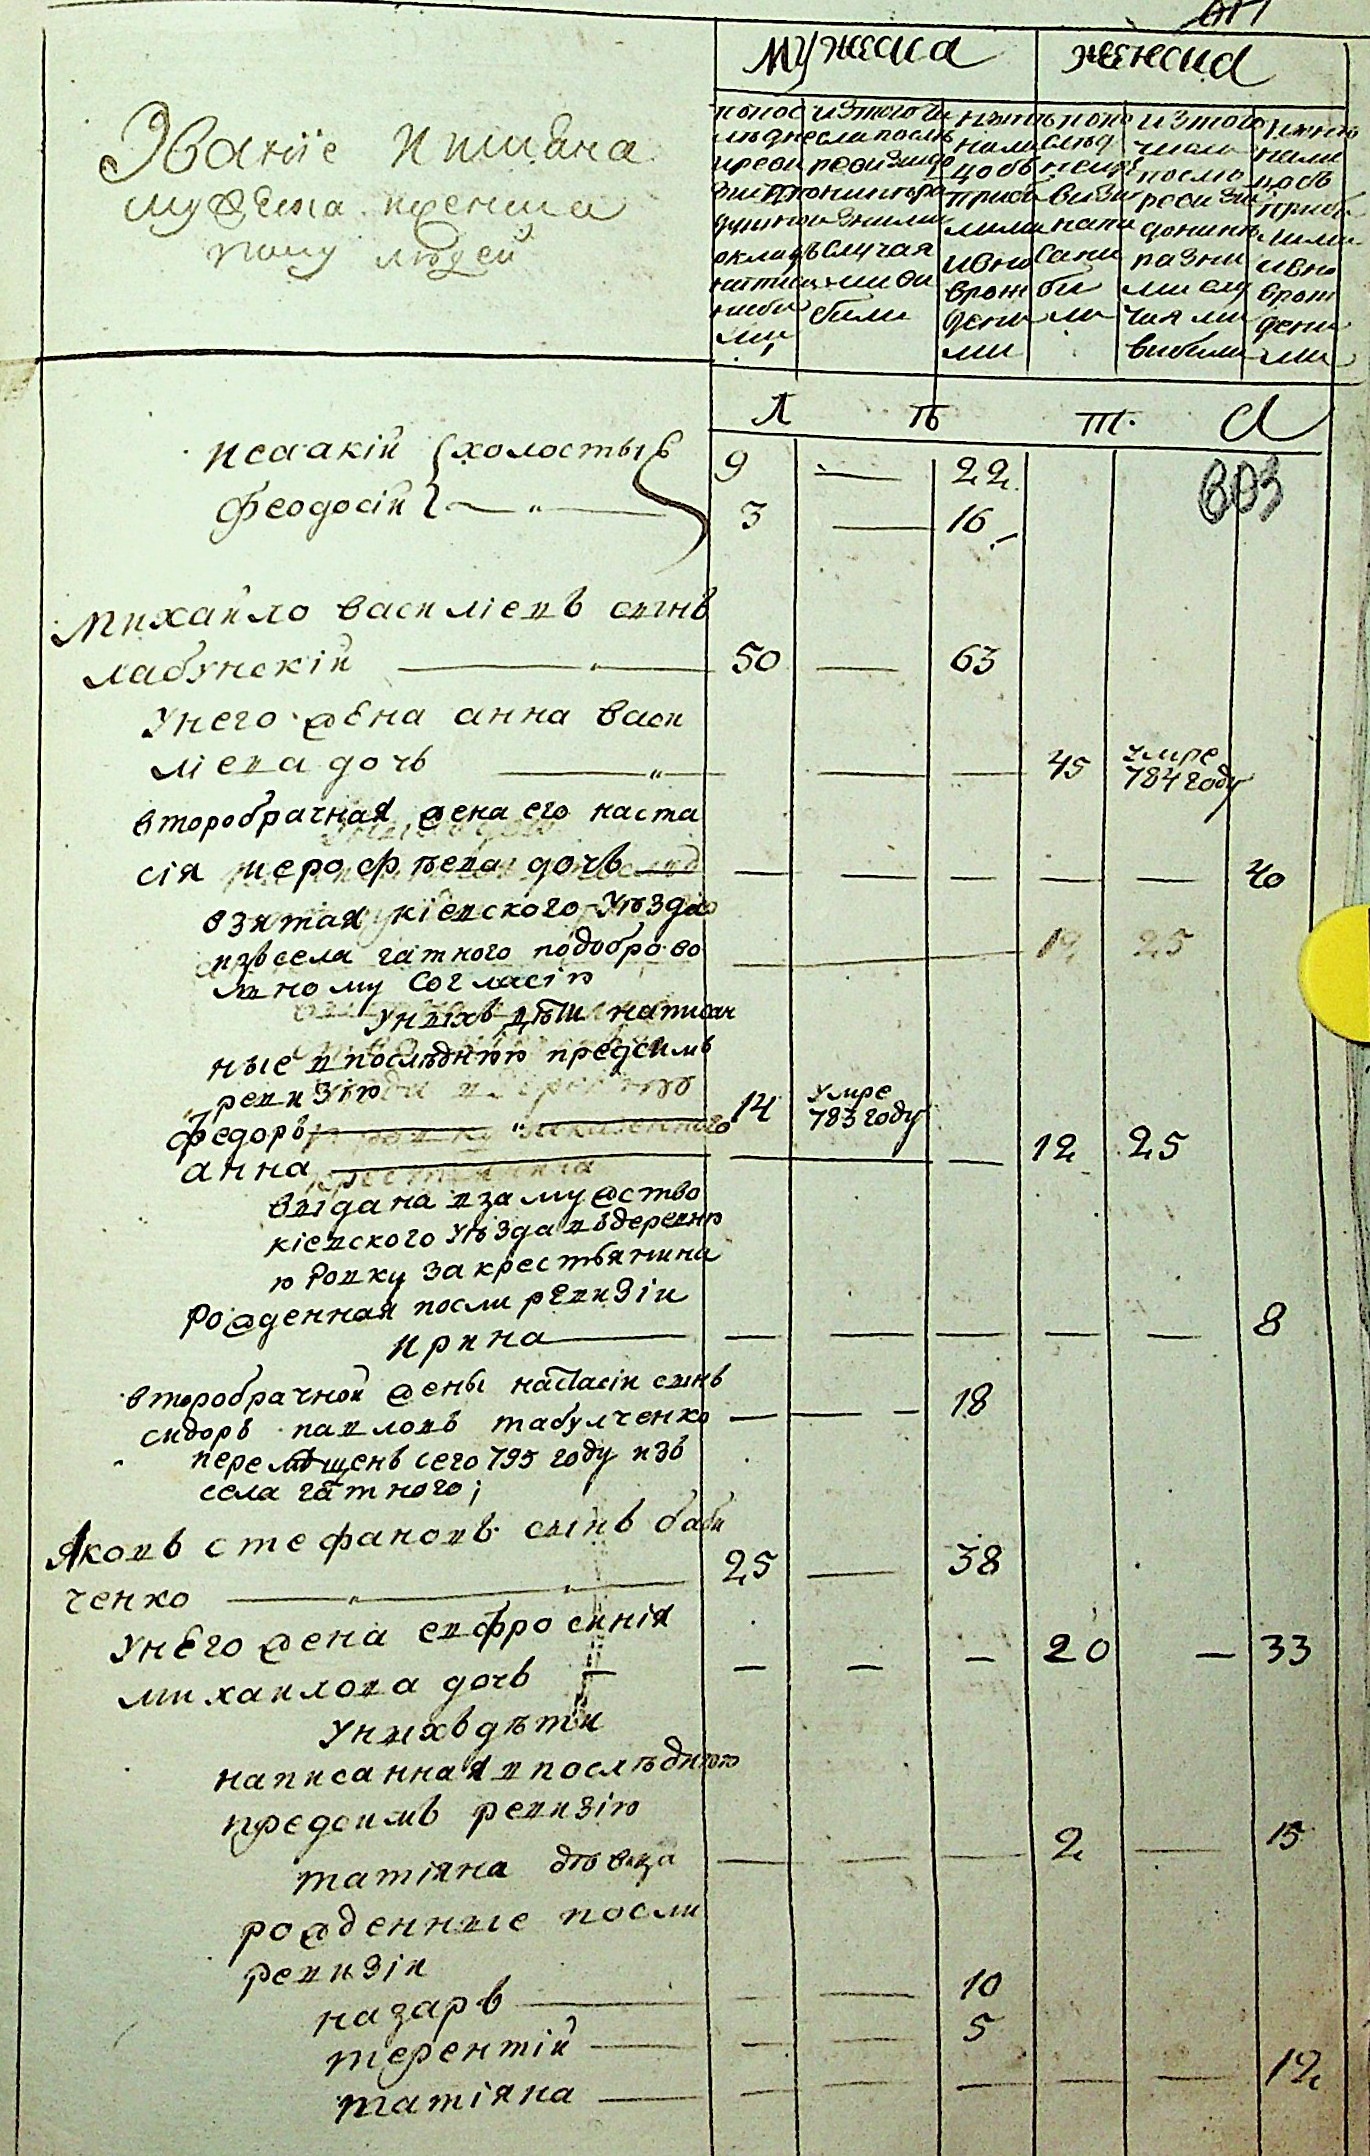 мужеска женска
Званïе и имѣна
мужеска и женска
полу людей
Л Ѣ Т. А
Исаакій холостые 9 — 22
Феодосій — „ — 3 — 16
Михайло василіевъ сынъ
лабунскій — „ — 50 — 63
Унего жена анна васи
ліева дочь — „ — — — 45 умре 784 году
второбрачная жена его наста
сія іерофѣева дочь — — — — — — 40
взятая кіевского уѣзда
изъ села гатного подоброво
лному согласію
Унихъ дѣти написан
ные впослѣднюю предсимъ
ревизію
Федоръ — „ — 14 умре 783 году
анна — — — — 12 25
выдана взамужство
кіевского уѣзда вдеревню
юровку за крестьянина
Рожденная посли ревизіи
ирина — — — — — — 8
второбрачной жены настасіи сынъ
сидоръ павловъ табулченко — — — 18
перемѣщенъ сего 795 году изъ
села гатного;
Яковъ стефановъ сынъ баби
ченко — „ — „ — 25 — 38
Унего жена евфросинія
михайлова дочь — — — — 20 — 33
Унихъ дѣти
написанная впослѣднюю
предсимъ ревизію
татіяна дѣвка — — — 2 — 15
рожденные посли
ревизіи
назаръ — — 10
терентій — — — 5
татіяна — — — — — — 12